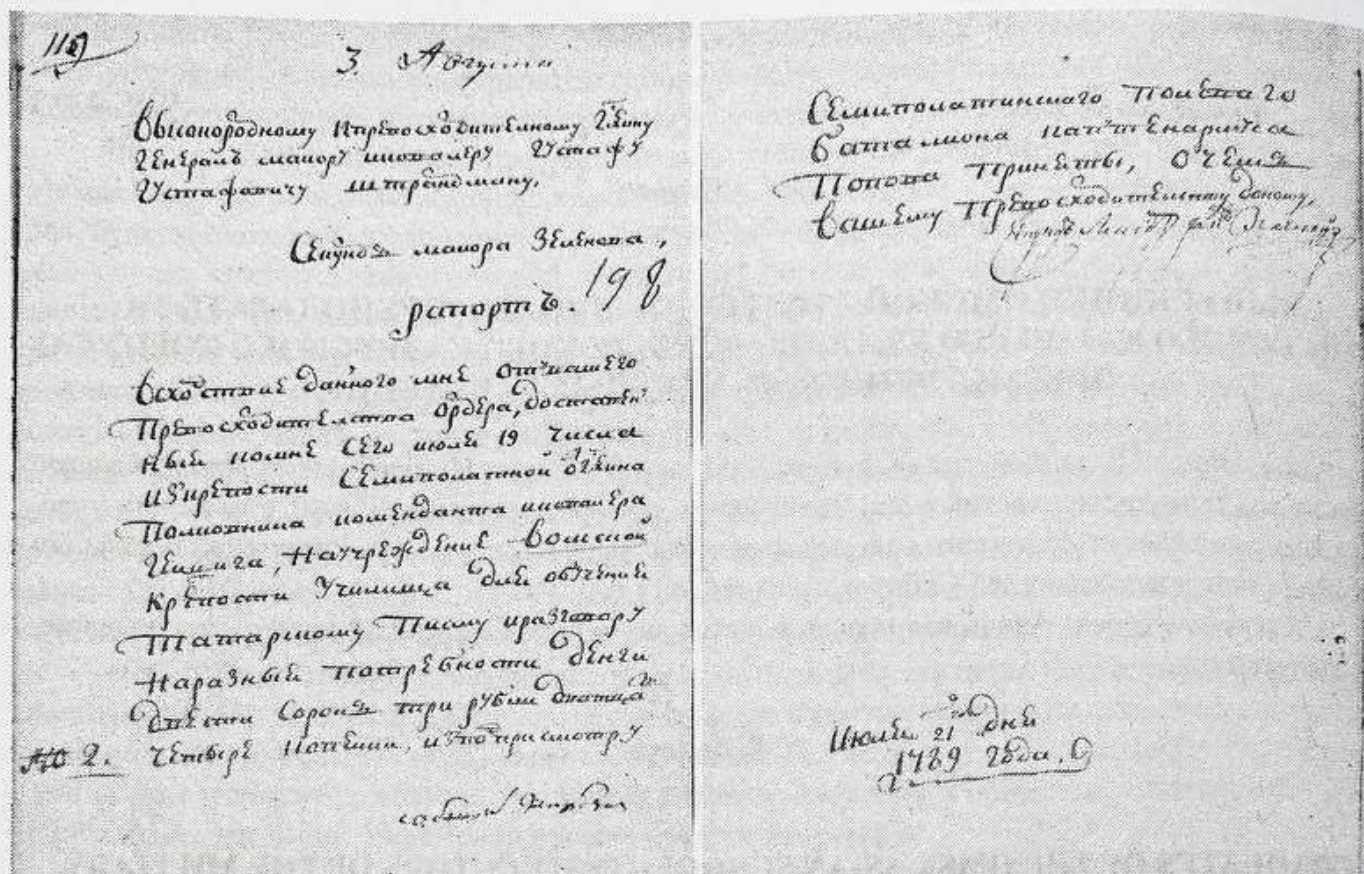 3. Августа
Высокородному и превосходительному Гдину
Генералъ маиору и кавалеру Густафу
Густафовичу Штрандману,
Секундъ маиора Зеленова,
198
рапортъ.
Всходствие данного мне отвашего
Превосходительства ордера, доставлен
ныя комне сего июля 19 числа
искрепости Семиполатной отгдина
Полковника коменданта и кавалера
, научреждение вомской
крепости училища для обучения
Татарскому писму иразговору
наразныя потребности денги
двести сорокъ три рубли дватцать
№ 2. четыре копейки, и подприсмотръ
Семиполатинского полеваго
баталиона
Попова приняты, о чемъ
вашему Превосходительству доношу,
Секундъ Маиоръ Зеленовъ
Июля 21 дня
1789 года.